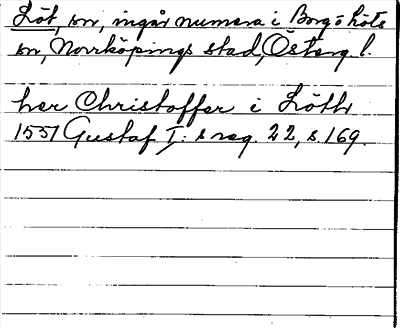 Löt, sn, ingår numera i Borgs Löts
sn, Norrköpings stad, Österg. l.
her Christoffer i Löth
1551 Gustaf I:s reg. 22, s. 169.